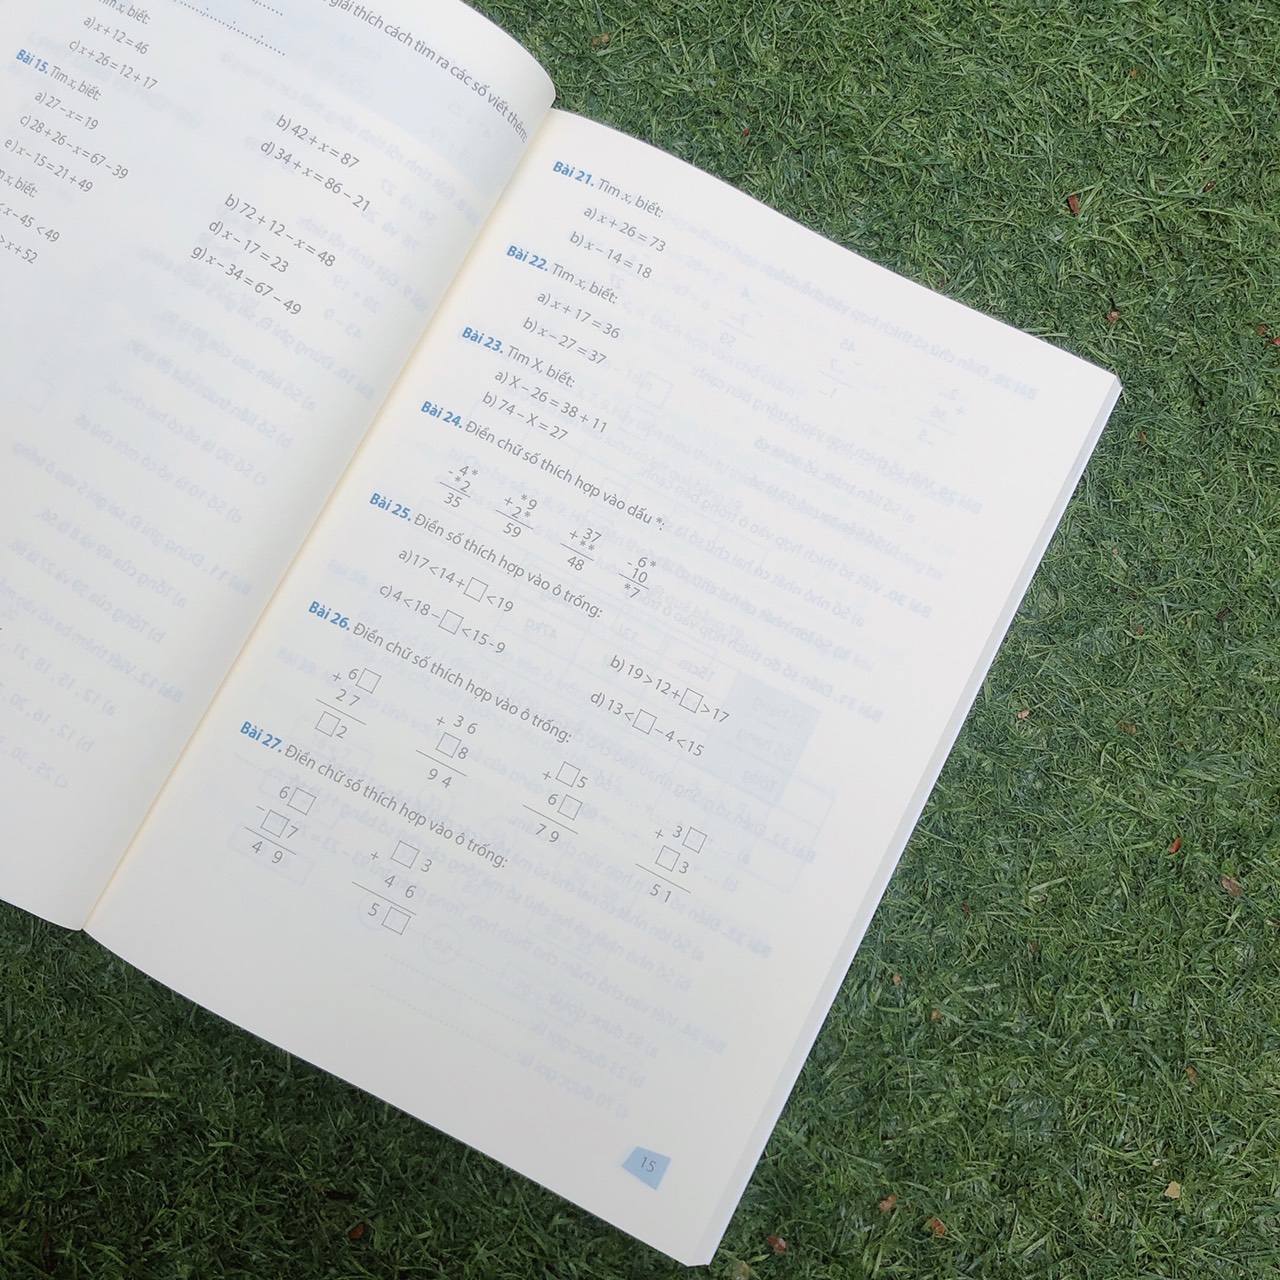 giải thích cách tìm ra các số viết thêm.
x, biết:
a) x + 12 = 46
b) 42 + x = 87
c) x + 26 = 12 + 17
d) 34 + x = 86 - 21
Bài 15. Tìm x, biết:
a) 27 - x = 19
b) 72 + 12 - x = 48
c) 28 + 26 - x = 67 - 39
d) x - 17 = 23
e) x - 15 = 21 + 49
g) x - 34 = 67 - 49
x, biết:
x - 45 < 49
> x + 52
Bài 21. Tìm x, biết:
a) x + 26 = 73
b) x - 14 = 18
Bài 22. Tìm x, biết:
a) x + 17 = 36
b) x - 27 = 37
Bài 23. Tìm X, biết:
a) X - 26 = 38 + 11
b) 74 - X = 27
Bài 24. Điền chữ số thích hợp vào dấu *:
4* *9 37 6*
- *2 + 2* + ** - 10
35 59 48 *7
Bài 25. Điền số thích hợp vào ô trống:
a) 17 < 14 + □ < 19
b) 19 > 12 + □ > 17
c) 4 < 18 - □ < 15 - 9
d) 13 < □ - 4 < 15
Bài 26. Điền chữ số thích hợp vào ô trống:
6□ 36 □5 3□
+ 27 + □8 + 6□ + □3
□2 94 79 51
Bài 27. Điền chữ số thích hợp vào ô trống:
6□ □3
- □7 + 46
49 5□
15